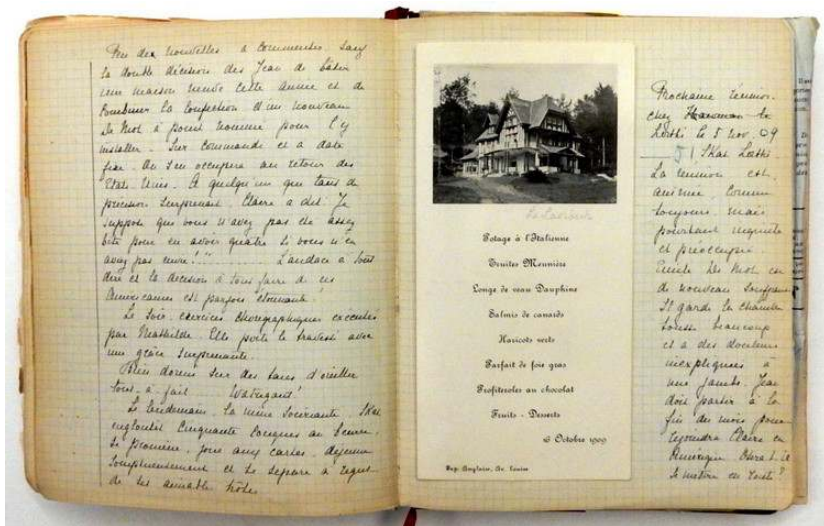 Peu de nouvelles à commenter. Sauf
la double décision des Jean de bâtir
une maison neuve cette année et de
combiner la confection d'un nouveau
De Mot à point nommé pour l'y
installer. Sur commande et à date
fixe. On s'en occupera au retour des
Etats-Unis. A quelqu'un que tant de
précision surprenait. Claire a dit : Je
suppose que vous n'avez pas été assez
bête pour en avoir quatre si vous n'en
aviez pas envie ! " L'audace à tout
dire et la décision à tout faire de ces
Américaines est parfois étonnante !
Le soir, exercices chorégraphiques exécutés
par Mathilde. Elle porte le travesti avec
une grâce surprenante.
dorens sur des
tout à fait
Le lendemain, la mine souriante, Skat
engloutit cinquante couques au beurre.
Se promène, joue aux cartes, déjeune
somptueusement et se sépare à regret
de ses aimables hôtes
Le
Potage à l'Italienne
Truites Meunière
Longe de veau Dauphine
Salmis de canards
Haricots verts
Parfait de foie gras
Profiteroles au chocolat
Fruits - Desserts
6 Octobre 1909
Imp. Anglaise, Av. Louise
Prochaine réunion
chez
le 5 Nov. 09
51 Skat
La réunion est
animée comme
toujours, mais
pourtant inquiète
et préoccupée
Emile De Mot est
de nouveau souffrant
Il garde la chambre
tousse beaucoup
et a des douleurs
inexpliquées à
une jambe. Jean
doit partir à la
fin du mois pour
rejoindre Claire en
Amérique. Osera-t-il
se mettre en route ?